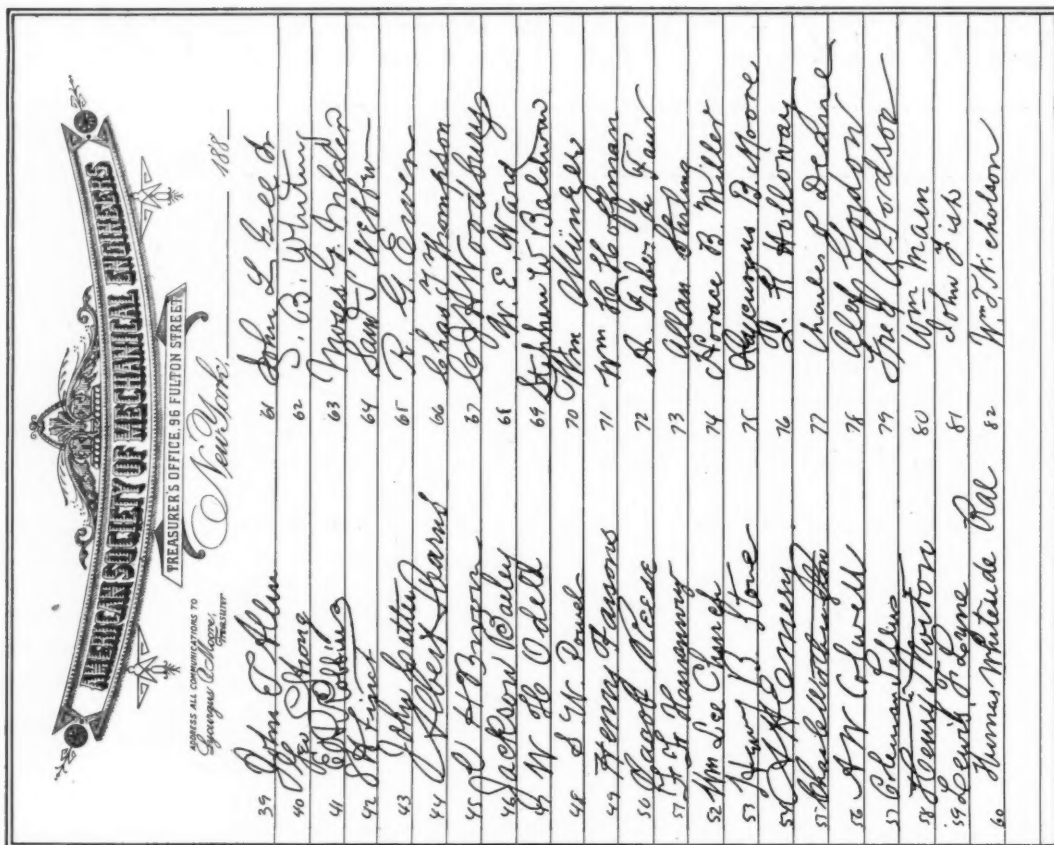 AMERICAN SOCIETY OF MECHANICAL ENGINEERS
TREASURER'S OFFICE, 96 FULTON STREET
ADDRESS ALL COMMUNICATIONS TO
Lycurgus B. Moore,
Treasurer
New York, 188
39 John F. Allen
40 Geo Strong
41
42
43 John Sutton
44 Albert Stearns
45 H Brown
46 Jackson Bailey
47 W H Odell
48 S W Powel
49 Henry Parsons
50 Jacob Reese
51 F. F. Hemenway
52 Wm Lee Church
53 Henry B Stone
54 Emery
55 Charles C Worthington
56 A W Colwell
57 Coleman Sellers
58 Henry Morton
59 Lewis F. Lyne
60 Thomas Whiteside Rae
61 John L Gill Jr
62 S. B. Whiting
63 Moses G. Wilder
64 Saml Webber
65 R. G. Ewer
66 Chas T Thompson
67 C J H Woodbury
68 W. E. Ward
69 Stephen W Baldwin
70 Wm
71 Wm H Hoffman
72 A. Faber du Faur
73 Allan Stirling
74 Horace B. Miller
75 Lycurgus B. Moore
76 J. F. Holloway
77 Charles Deane
78 Alex Gordon
79 Fred
80 Wm Main
81 John Fish
82 Wm T. Nicholson